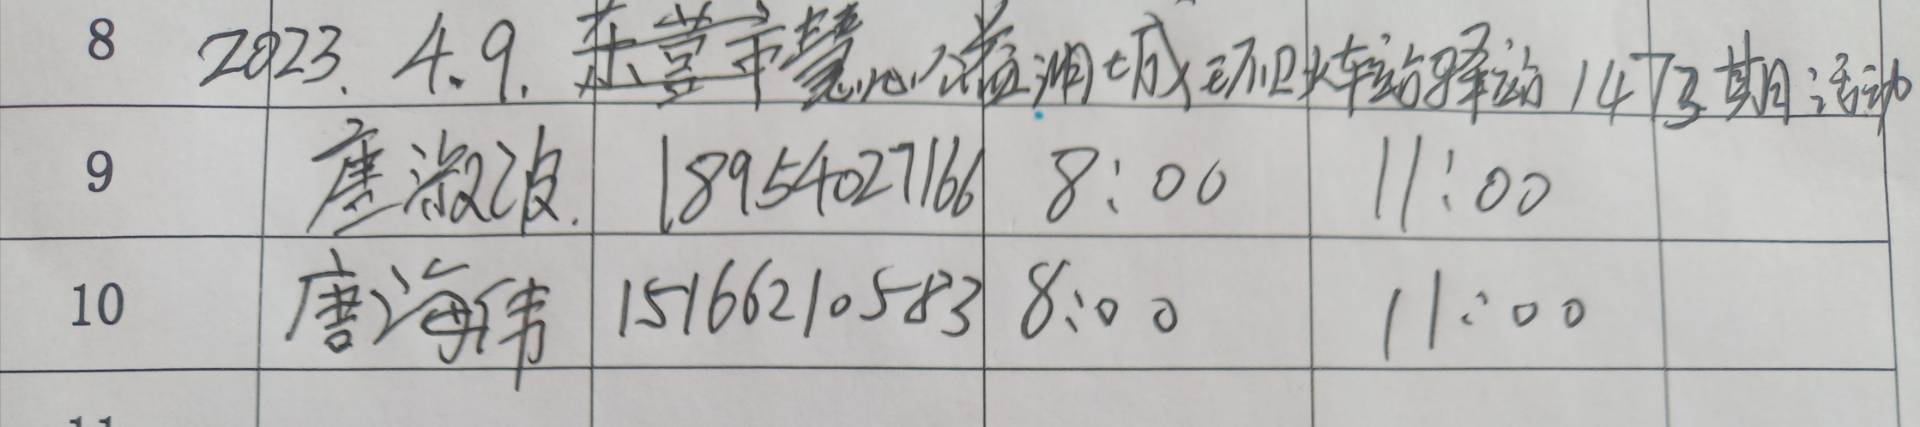 8 2023.4.9.东营市慧心公益湖城环卫火车站驿站1473期活动
9 唐淑波. 18954027166 8:00 11:00
10 唐海伟 15166210583 8:00 11:00
11